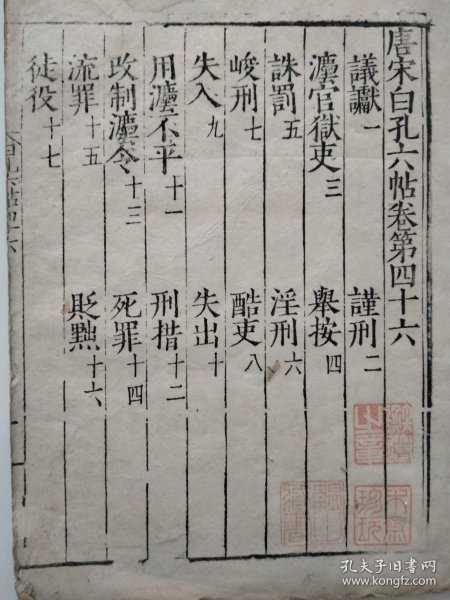 唐宋白孔六帖卷第四十六
議讞一 謹刑二
灋官獄吏三 舉按四
誅罰五 淫刑六
峻刑七 酷吏八
失入九 失出十
用灋不平十一 刑措十二
改制灋令十三 死罪十四
流罪十五 貶黜十六
徒役十七
孔夫子旧书网
www.kongfz.com